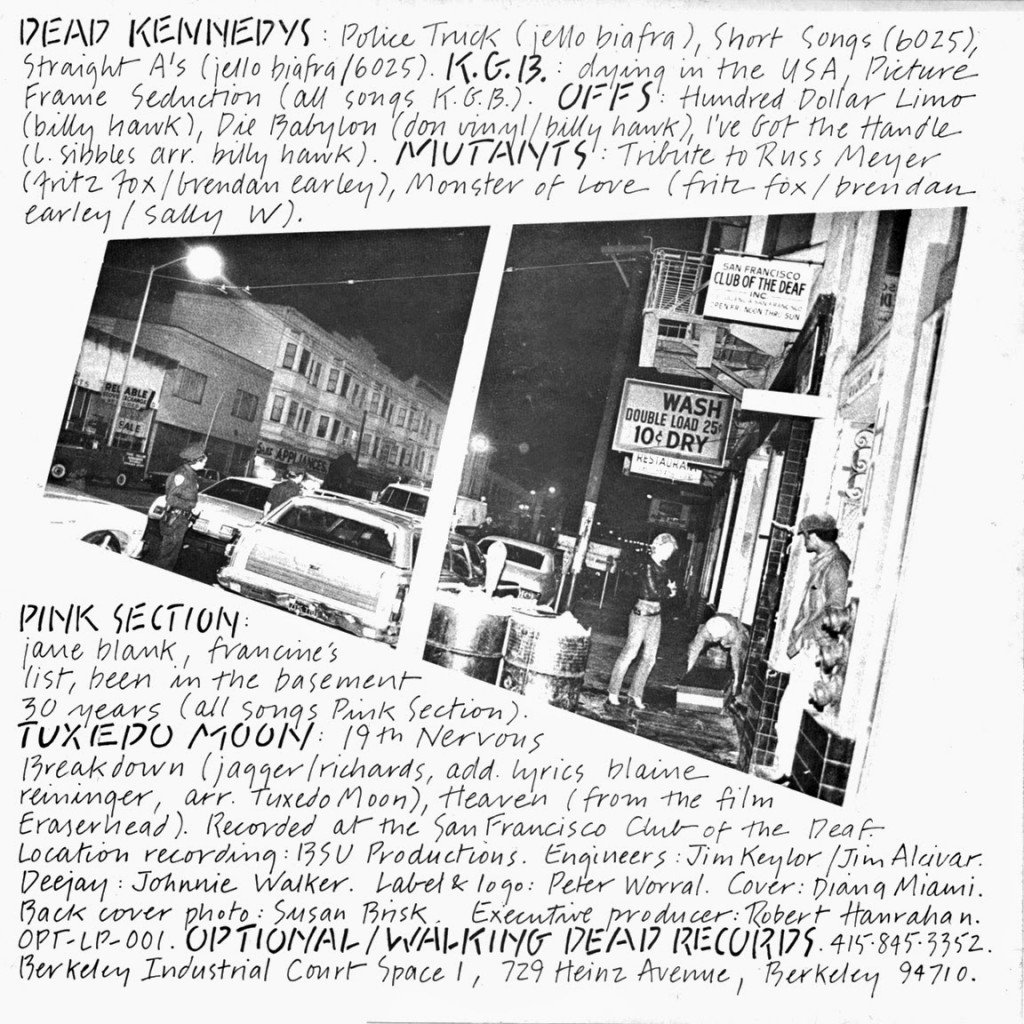 DEAD KENNEDYS: Police Truck (jello biafra), Short Songs (6025),
Straight A's (jello biafra/6025). K.G.B.: dying in the USA, Picture
Frame Seduction (all songs K.G.B.). OFFS: Hundred Dollar Limo
(billy hawk), Die Babylon (don vinyl/billy hawk), I've Got the Handle
(l. sibbles arr. billy hawk). MUTANTS: Tribute to Russ Meyer
(fritz fox/brendan earley), Monster of Love (fritz fox/brendan
earley/sally W).
SAN FRANCISCO
CLUB OF THE DEAF
INC.
WASH
DOUBLE LOAD 25¢
10¢ DRY
RESTAURANT
RELIABLE
SALE
APPLIANCES
PINK SECTION:
jane blank, francine's
list, been in the basement
30 years (all songs Pink Section).
TUXEDO MOON: 19th Nervous
Breakdown (jagger/richards, add. lyrics blaine
reininger, arr. Tuxedo Moon), Heaven (from the film
Eraserhead). Recorded at the San Francisco Club of the Deaf.
Location recording: BSU Productions. Engineers: Jim Keylor/Jim Alcivar.
Deejay: Johnnie Walker. Label & logo: Peter Worral. Cover: Diana Miami.
Back cover photo: Susan Brisk. Executive producer: Robert Hanrahan.
OPT-LP-001. OPTIONAL/WALKING DEAD RECORDS. 415.845.3352.
Berkeley Industrial Court Space 1, 729 Heinz Avenue, Berkeley 94710.